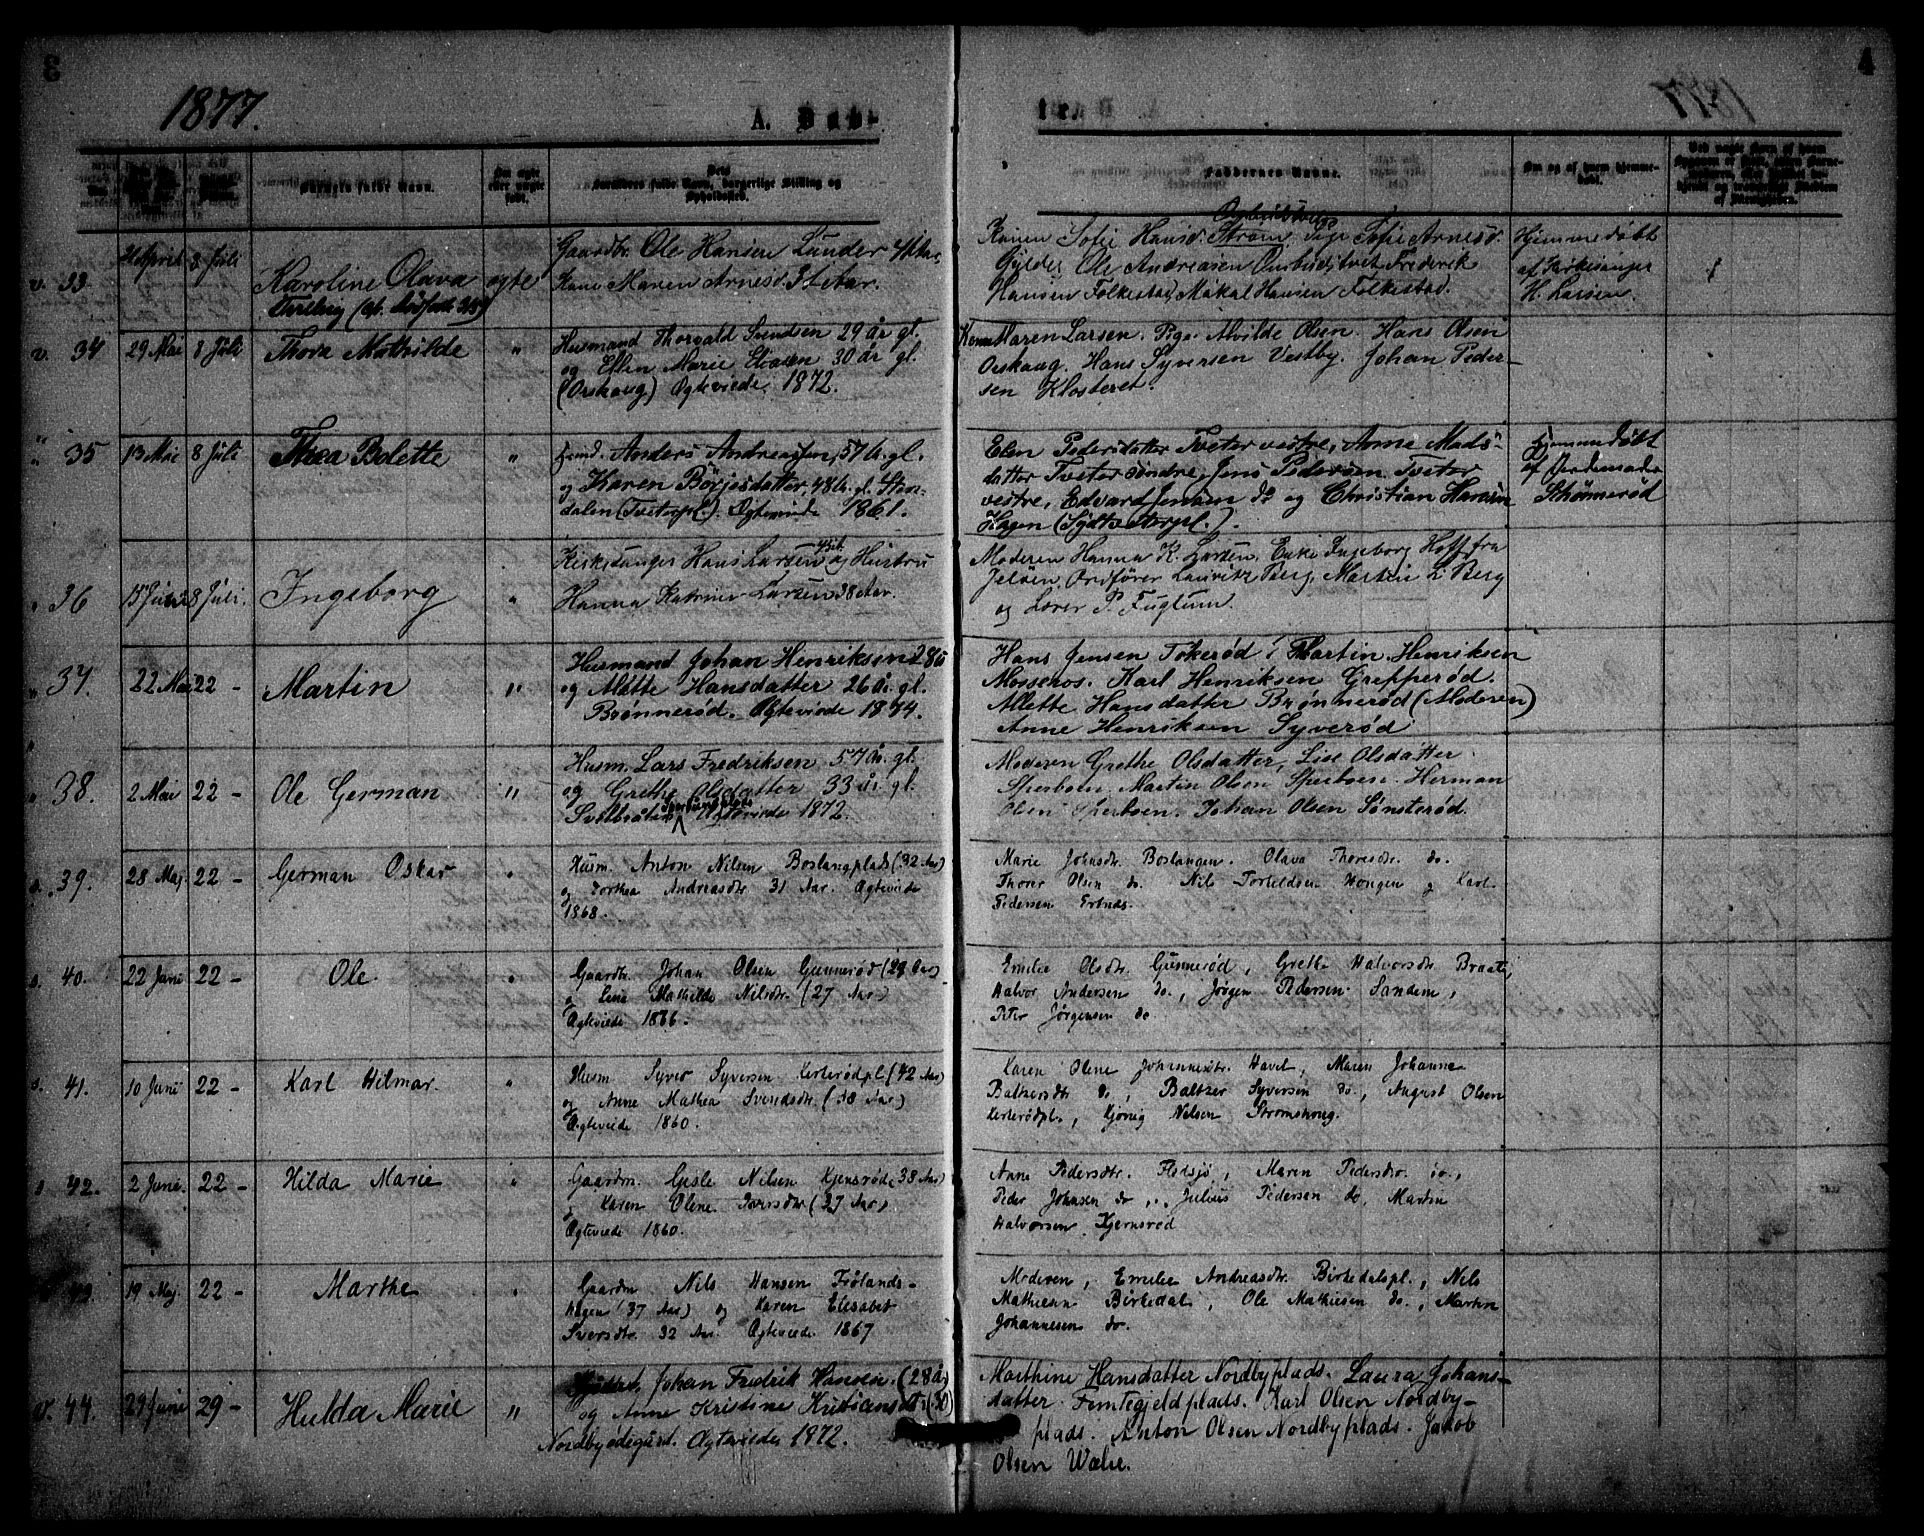 3
4
1877.
A. Døb-
te.
Barnets fulde Navn.
Om ægte eller uægte født.
Forældres fulde Navn, borgerlige Stilling og
Opholdssted.
Faddernes Navne.
Om og af hvem hjemme-
døbt.
v. 33 April 8 Juli Karoline Olava ægte
Gaardbr. Ole Hansen Lunder
Kone Maren Arnesd. Aar.
Konen Sofie Hansd. Strøm, Pige Sofie Arnesd.
Ole Andreasen Ombudstvet, Frederik
Hansen Folkestad, Mikal Hansen Folkestad.
Hjemmedøbt
af Kirkesanger
H. Larsen.
v. 34 29 Mai 8 Juli Thora Mathilde "
Husmand Thorvald Svendsen 29 år gl.
og Ellen Marie 30 år gl.
(Orskaug) Ægteviede 1872.
Kone Maren Larsen. Pige Alvilde Olsen. Hans Olsen
Orskaug. Hans Syversen Vestby. Johan Peder-
sen Klosteret.
" 35 13 Mai 8 Juli Thea Bolette "
Anders Andreassen, 57 å. gl.
og Karen Börjesdatter, 48 å. gl. Sten-
dalen (Tveterpl.). Ægteviede 1861.
Elen Pedersdatter Tveter vestre, Anne Mads-
datter Tveter søndre, Jens Pedersen Tveter
vestre, Edvard Jensen do og Christian Hansen
Hagen
Hjemmedøbt
af Jordemoder
Strømnerød
" 36 15 Juni 8 Juli. Ingeborg "
Kirkesanger Hans Larsen og Hustru
Hanna Katrine Larsen 38 Aar.
Moderen Hanna K. Larsen, Enke Ingeborg Hoff fra
Jeløen, Ordfører Lauritz Berg, Martin L. Berg
og Lærer P. Fuglum.
" 37. 22 Mai 22 - Martin "
Husmand Johan Henriksen 28 å
og Alette Hansdatter 26 år gl.
Brønnerød. Ægteviede 1874.
Hans Jensen Tokerød, Martin Henriksen
Mosseros. Karl Henriksen Grepperød.
Allette Hansdatter Brønnerød (Moderen)
Anne Henriksen Syverød
" 38. 2 Mai 22 - Ole German "
Husm. Lars Fredriksen 57 år. gl.
og Grethe Olsdatter 33 år gl.
Ægteviede 1872.
Moderen Grethe Olsdatter, Lise Olsdatter
Sperboen. Martin Olsen Sperboen. Herman
Olsen Sperboen. Johan Olsen Sønsterød.
s. 39. 28 Maj 22 - German Oskar "
Husm. Anton Nilsen Boslangplads (32 Aar)
og Dorthea Andreasdtr. 31 Aar. Ægteviede
1868.
Marie Johnsdtr. Boslangen. Olava Thoresdtr. do.
Thorer Olsen do. Nils Torkildsen Hongen og Karl
Pedersen
s. 40. 22 Juni 22 - Ole "
Gaardbr. Johan Olsen Gunnerød (29 Aar)
og Line Mathilde Nilsdtr. (27 Aar)
Ægteviede 1876.
Emilie Olsdtr. Gunnerød, Grethe Halvorsdtr Braate,
Halvor Andersen do., Jørgen Pedersen Sandem,
Peter Jørgensen do.
s. 41. 10 Junii 22 - Karl Hilmar. "
Husm. Syver Syversen Kerterødpl. (42 Aar)
og Anne Mathea Svendsdtr. (38 Aar)
Ægteviede 1860.
Karen Olene Johannesdtr. Havel, Maren Johanne
Baltzersdtr do, Baltzer Syversen do., August Olsen
Kerterødpl., Nilsen
s 42. 2 Juni. 22 - Hilda Marie "
Gaardm. Gisle Nilsen Kjensrød (38 Aar)
og Karen Olene Iversdtr. (37 Aar).
Ægteviede 1860.
Anne Pedersdtr. Flessjø, Maren Pedersdtr. do.,
Peder Johnsen do., Julius Pedersen do, Martin
Halvorsen Kjernsrød
43. 19 Maj. 22 - Marthe "
Gaardm Nils Hansen Frölands-
hagen (37 Aar) og Karen Elisabet
Sversdtr. 32 Aar. Ægteviede 1867.
Moderen, Emilie Andreasdtr. Birkedalspl., Nils
Mathiesen Birkedal, Ole Mathiesen do., Martin
Johannesen do.
v. 44. 29 Juni 29 - Hulda Marie "
Johan Fredrik Hansen. (28 år)
og Anne Kristine Kristiansdtr. (30)
Nordbyødegård. Ægteviede 1872.
Marthine Hansdatter Nordbyplads. Laura Johans-
datter Femtegjeldplads. Karl Olsen Nordby-
plads. Anton Olsen Nordbyplads. Jakob
Olsen Wæle.